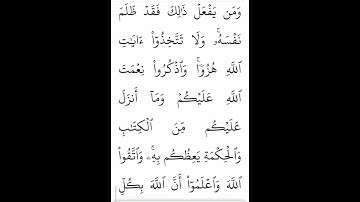 وَمَن يَفۡعَلۡ ذَٰلِكَ فَقَدۡ ظَلَمَ
نَفۡسَهُۥۚ وَلَا تَتَّخِذُوٓاْ ءَايَٰتِ
ٱللَّهِ هُزُوٗاۚ وَٱذۡكُرُواْ نِعۡمَتَ
ٱللَّهِ عَلَيۡكُمۡ وَمَآ أَنزَلَ
عَلَيۡكُم مِّنَ ٱلۡكِتَٰبِ
وَٱلۡحِكۡمَةِ يَعِظُكُم بِهِۦۚ وَٱتَّقُواْ
ٱللَّهَ وَٱعۡلَمُوٓاْ أَنَّ ٱللَّهَ بِكُلِّ